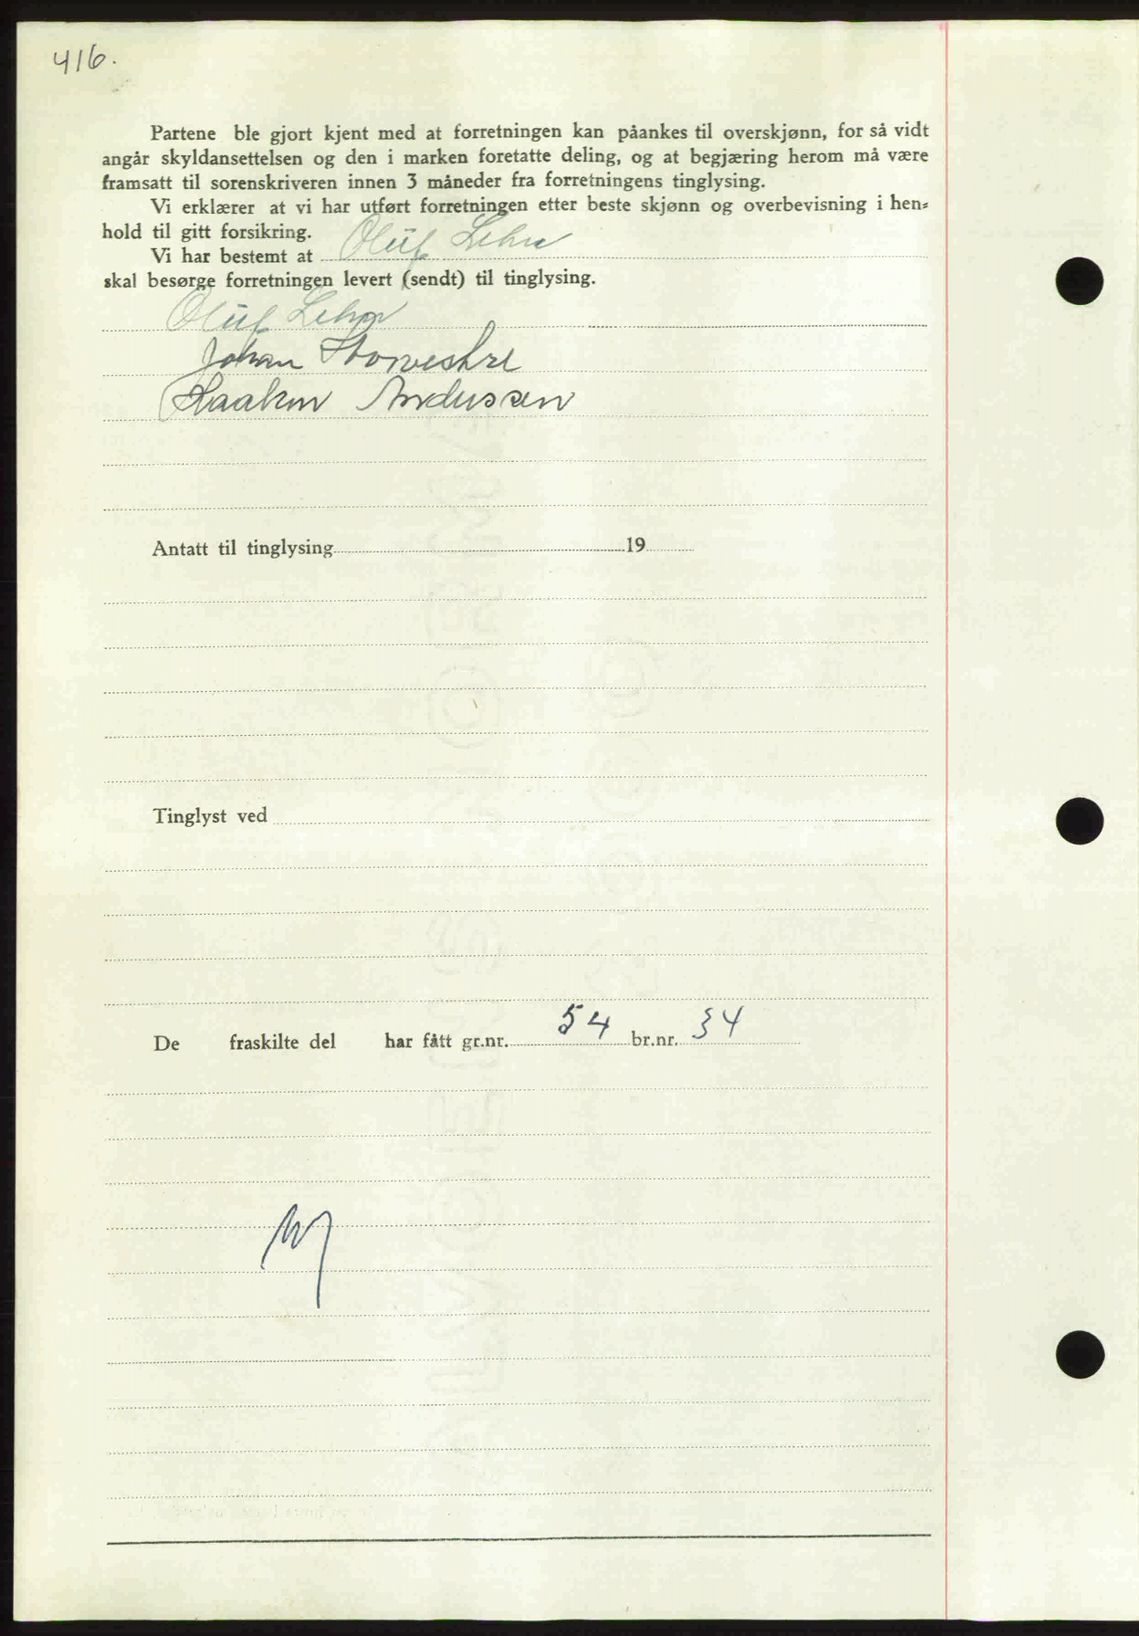 416.
Partene ble gjort kjent med at forretningen kan påankes til overskjønn, for så vidt
angår skyldansettelsen og den i marken foretatte deling, og at begjæring herom må være
framsatt til sorenskriveren innen 3 måneder fra forretningens tinglysing.
Vi erklærer at vi har utført forretningen etter beste skjønn og overbevisning i hen-
hold til gitt forsikring.
Vi har bestemt at Oluf Lehn
skal besørge forretningen levert (sendt) til tinglysing.
Oluf Lehn
Johan Storvestre
Haakon Andussen
Antatt til tinglysing 19
Tinglyst ved
De fraskilte del har fått gr.nr. 54 br.nr. 34